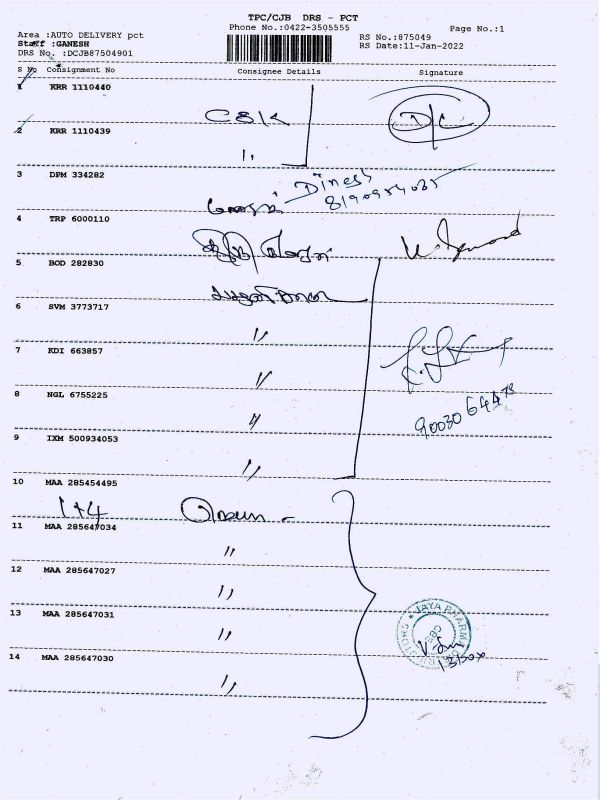 TPC/CJB DRS - PCT
Phone No.:0422-3505555
Page No.:1
Area :AUTO DELIVERY pct
RS No.:875049
Staff :GANESH
RS Date:11-Jan-2022
DRS No. :DCJB87504901
S No Consignment No Consignee Details Signature
1 KRR 1110440
C8K D/C
2 KRR 1110439
"
3 DPM 334282
Dinesh
4 TRP 6000110
5 BOD 282830
6 SVM 3773717
"
7 KDI 663857
"
8 NGL 6755225
"
9003064478
9 IXM 500934053
"
10 MAA 285454495
1+4
11 MAA 285647034
"
12 MAA 285647027
"
13 MAA 285647031
"
JAYA PHARMA
CBE
14 MAA 285647030
"